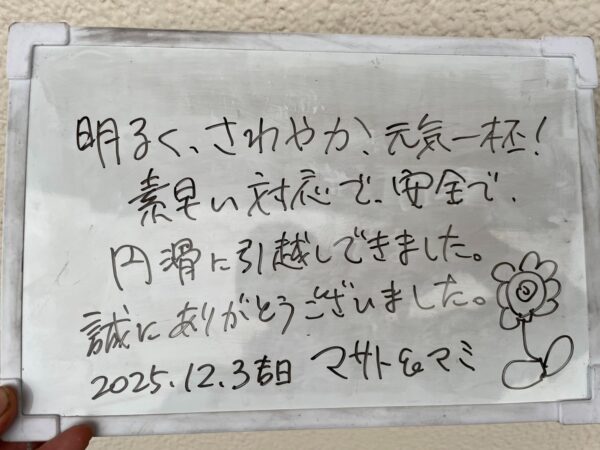 明るく、さわやか、元気一杯！
素早い対応で、安全で、
円滑に引越しできました。
誠にありがとうございました。
2025.12.3吉日 マサト&マミ